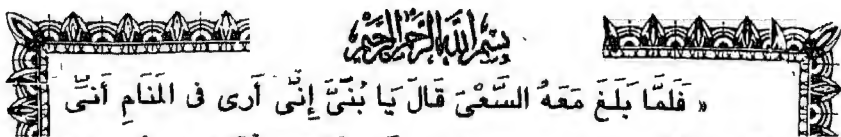 بسم الله الرحمن الرحيم
« فَلَمَّا بَلَغَ مَعَهُ السَّعْىَ قَالَ يَا بُنَىَّ إِنِّى أَرى فى المَنَامِ أَنىِّ